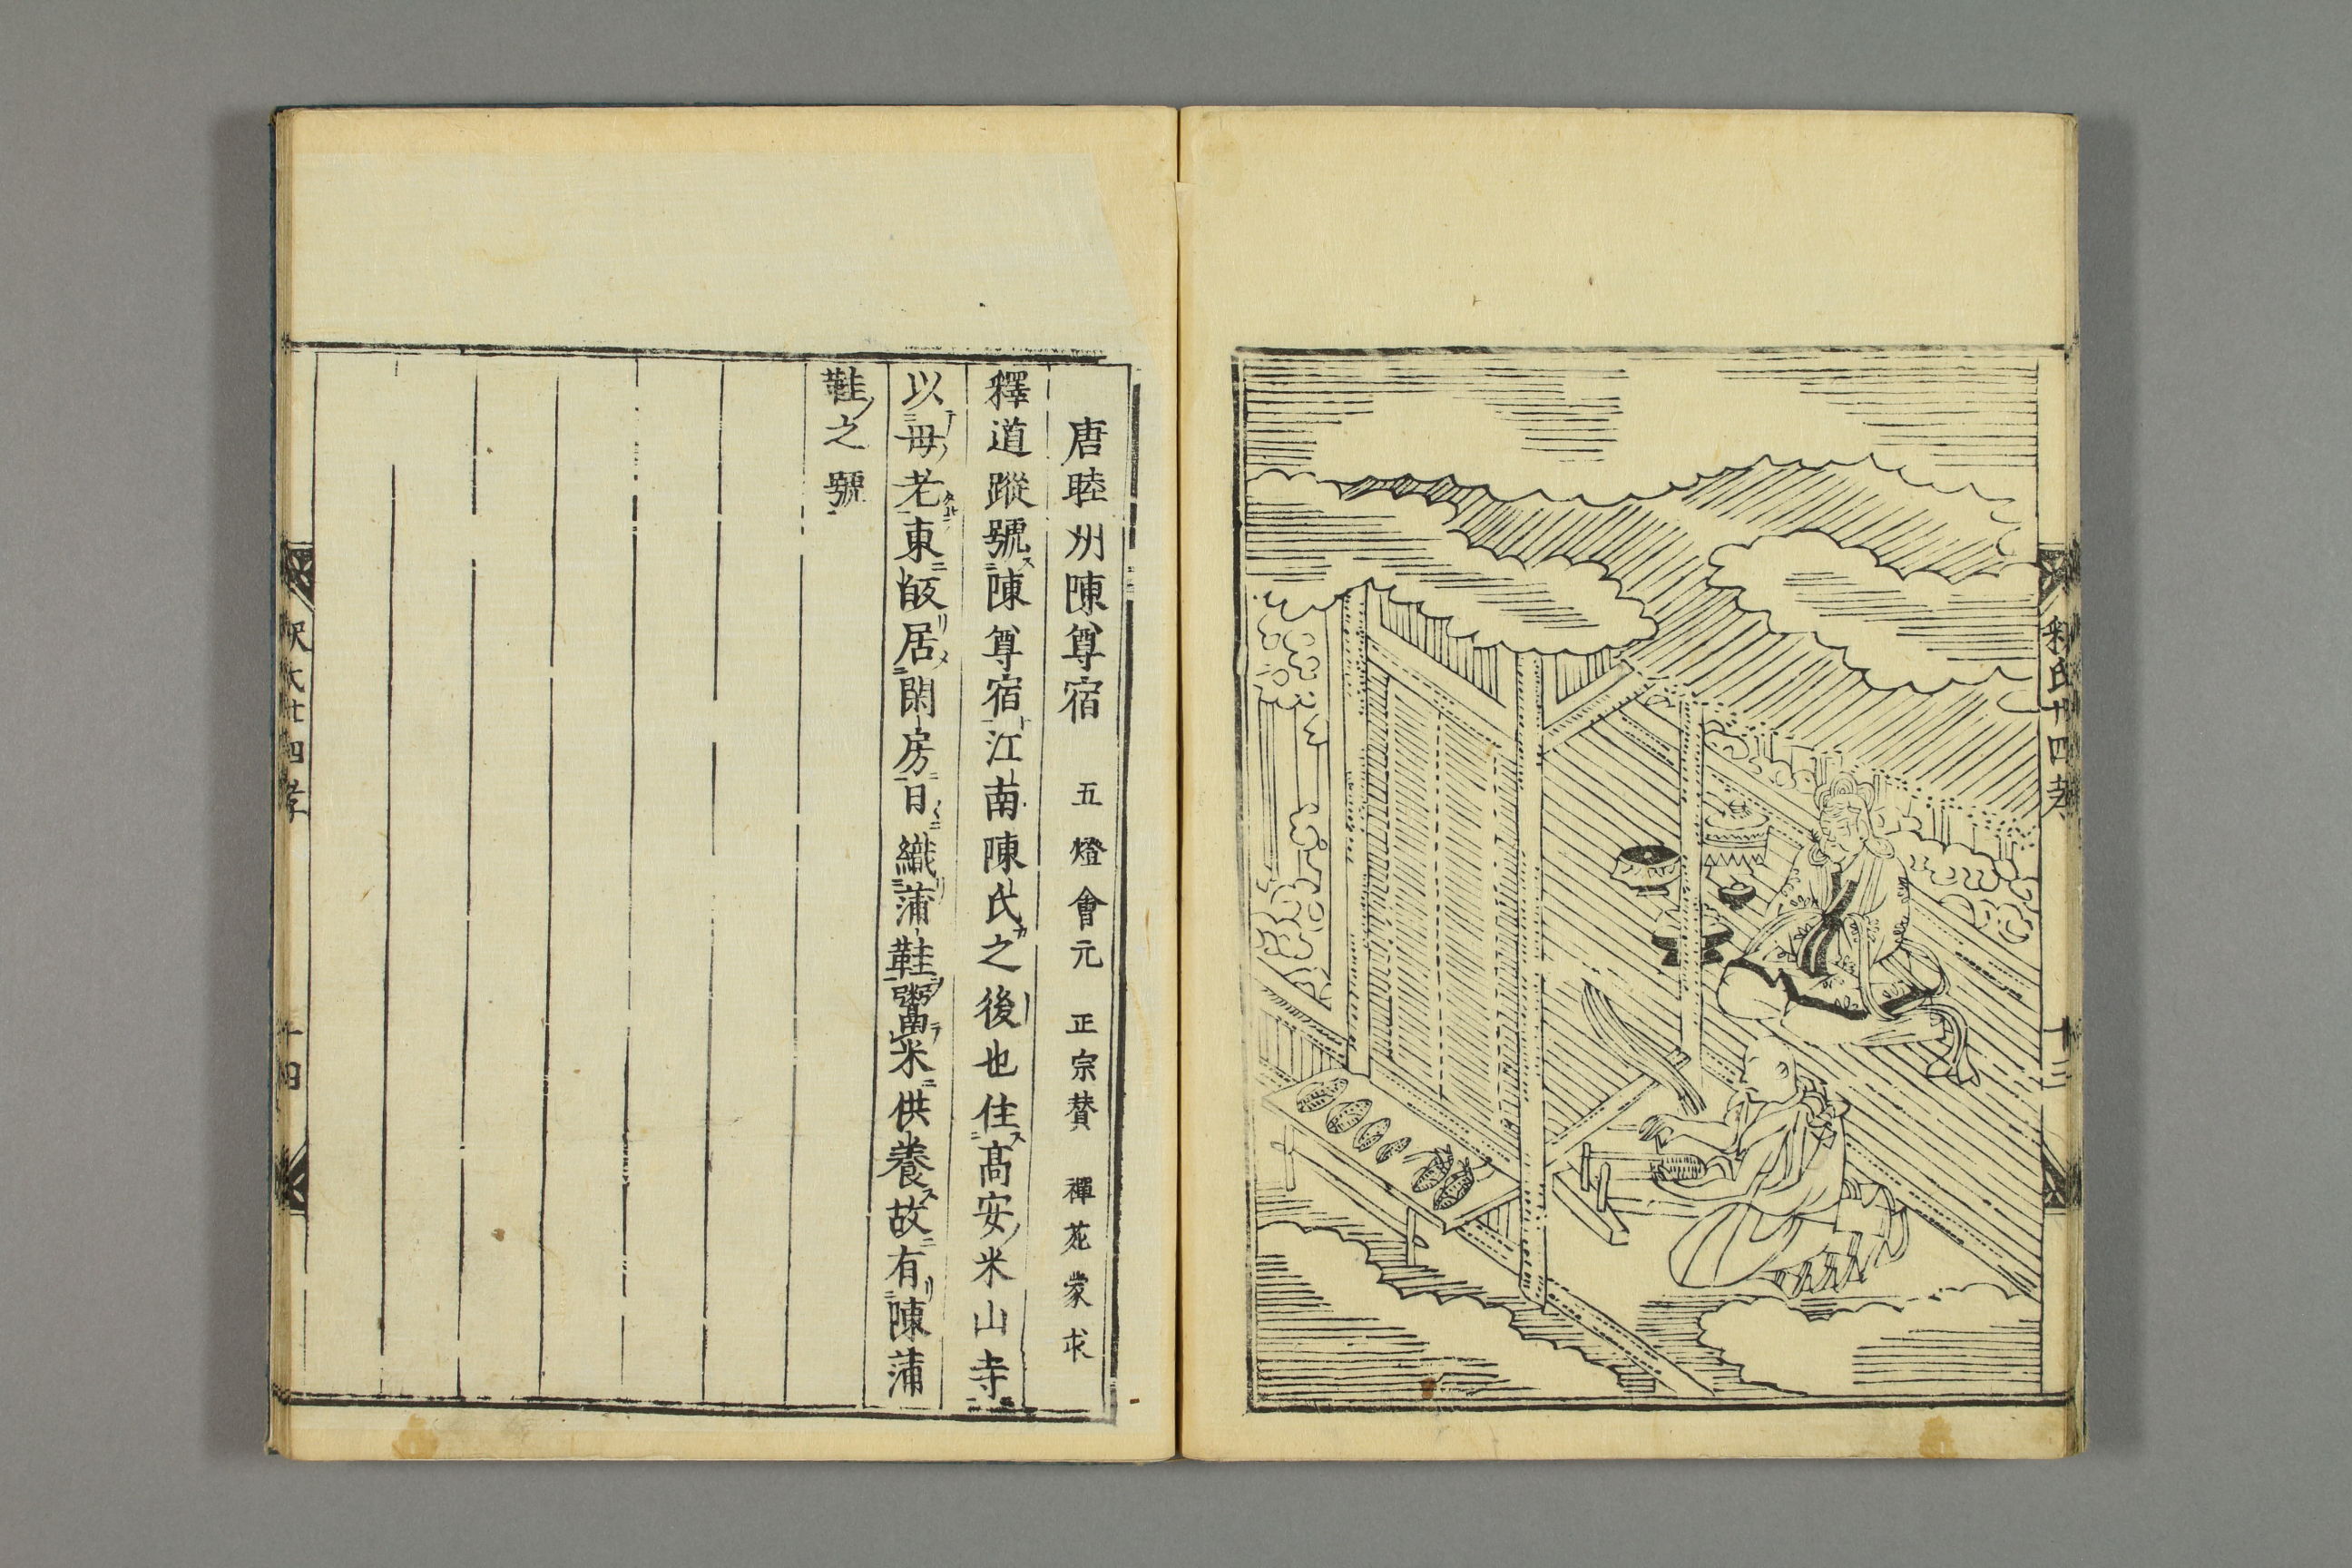 釋氏廿四孝
十三
唐睦州陳尊宿 五燈會元 正宗賛 禪苑蒙求
釋道蹤號陳尊宿江南陳氏之後也住高安米山寺
以母老東皈居閑房日織蒲鞋鬻米供養故有陳蒲
鞋之號
釈氏廿四孝
十四